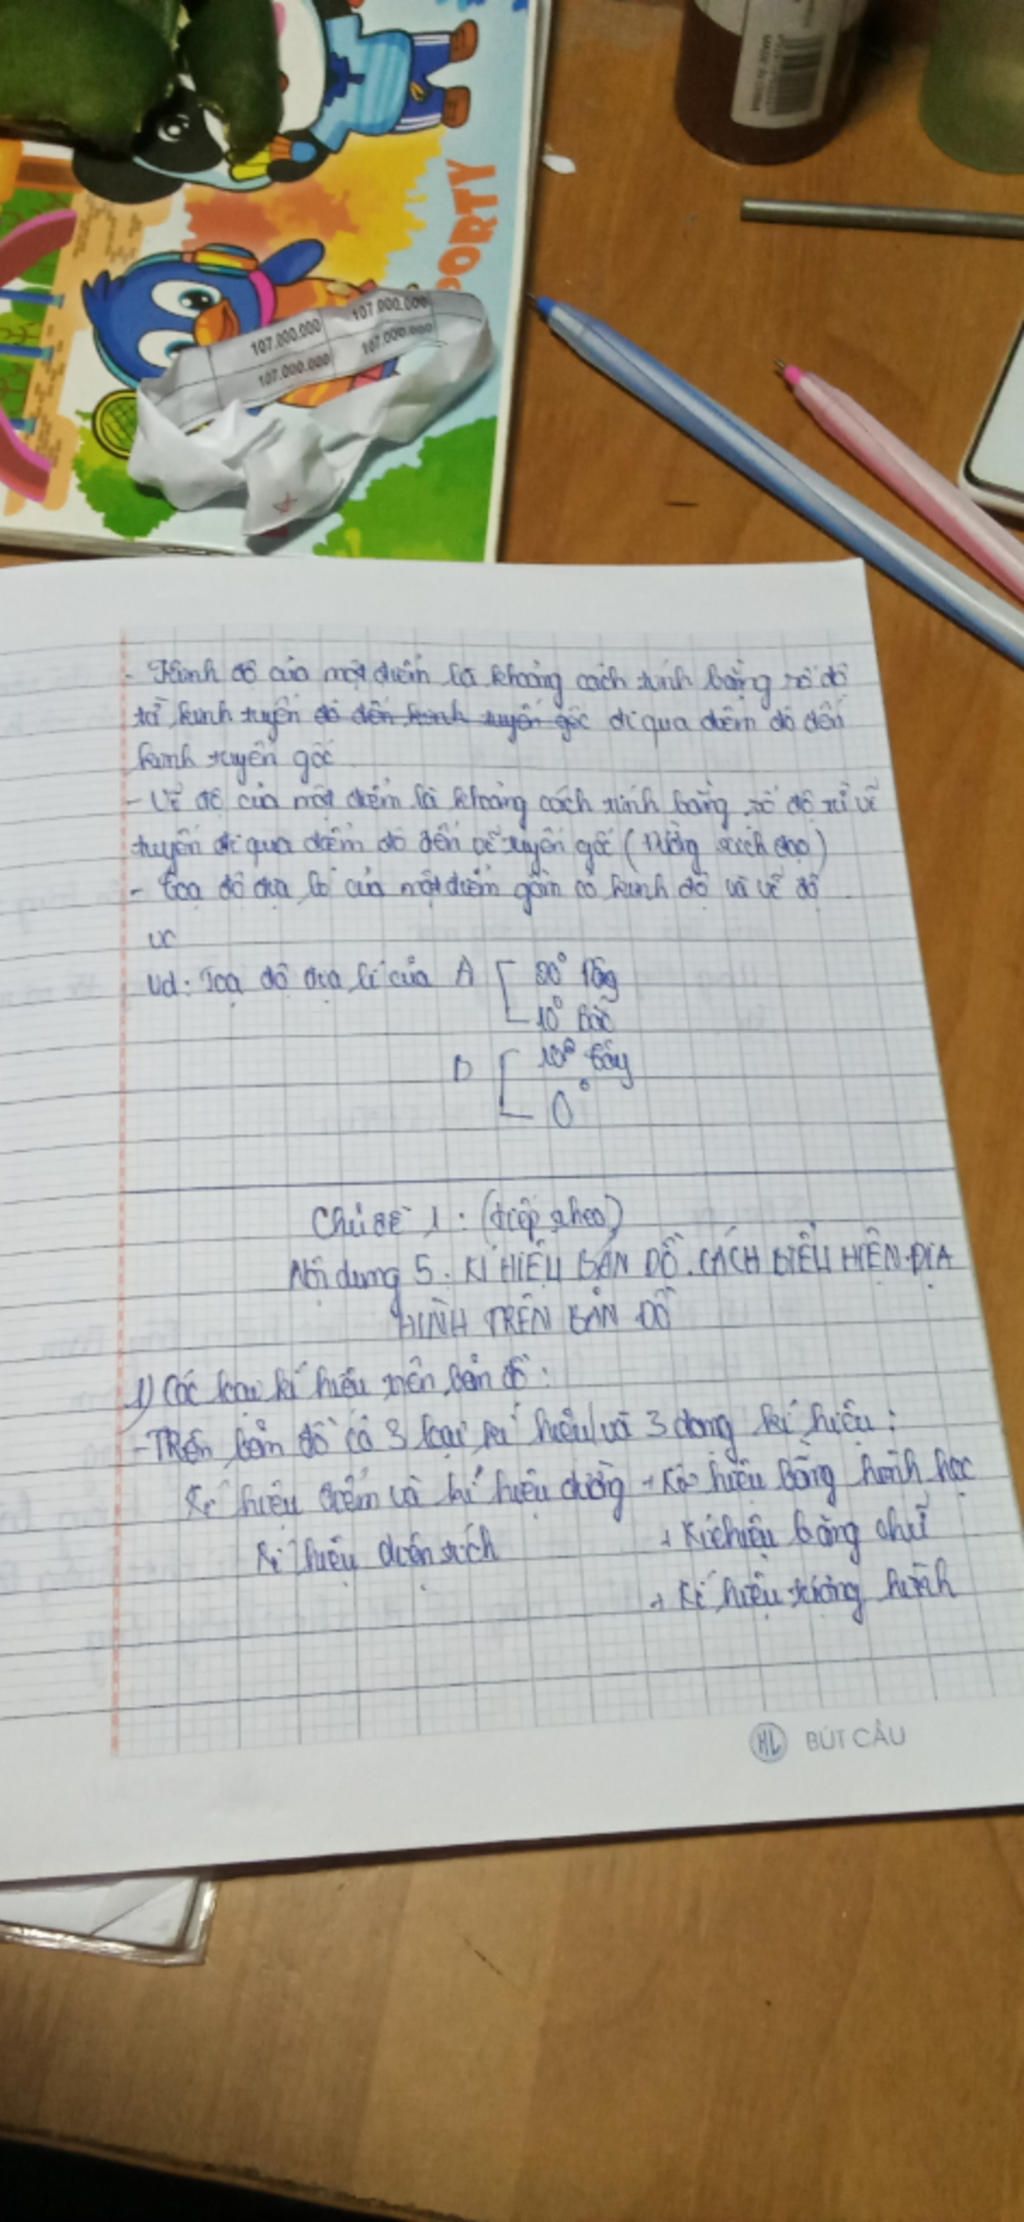 PORTY
107.000.000 107.000.000
107.000.000 107.000.000
- Kinh độ của một điểm là khoảng cách tính bằng số độ
từ kinh tuyến đó đến kinh tuyến gốc đi qua điểm đó đến
kinh tuyến gốc
- Vĩ độ của một điểm là khoảng cách tính bằng số độ từ vĩ
tuyến đi qua điểm đó đến vĩ tuyến gốc (đường xích đạo)
- Toạ độ địa lí của một điểm gồm có kinh độ và vĩ độ
vc
Vd: Toạ độ địa lí của A [ 20° Tây
10° Bắc
[ 10° Tây
0°
Chủ đề 1 : (tiếp theo)
Nội dung 5. KÍ HIỆU BẢN ĐỒ. CÁCH BIỂU HIỆN ĐỊA
HÌNH TRÊN BẢN ĐỒ
1) Các loại kí hiệu trên bản đồ :
- Trên bản đồ có 3 loại kí hiệu và 3 dạng kí hiệu :
Kí hiệu điểm và kí hiệu đường + Kí hiệu bằng hình học
Kí hiệu diện tích + Kí hiệu bằng chữ
+ Kí hiệu tượng hình
HL BÚT CÂU